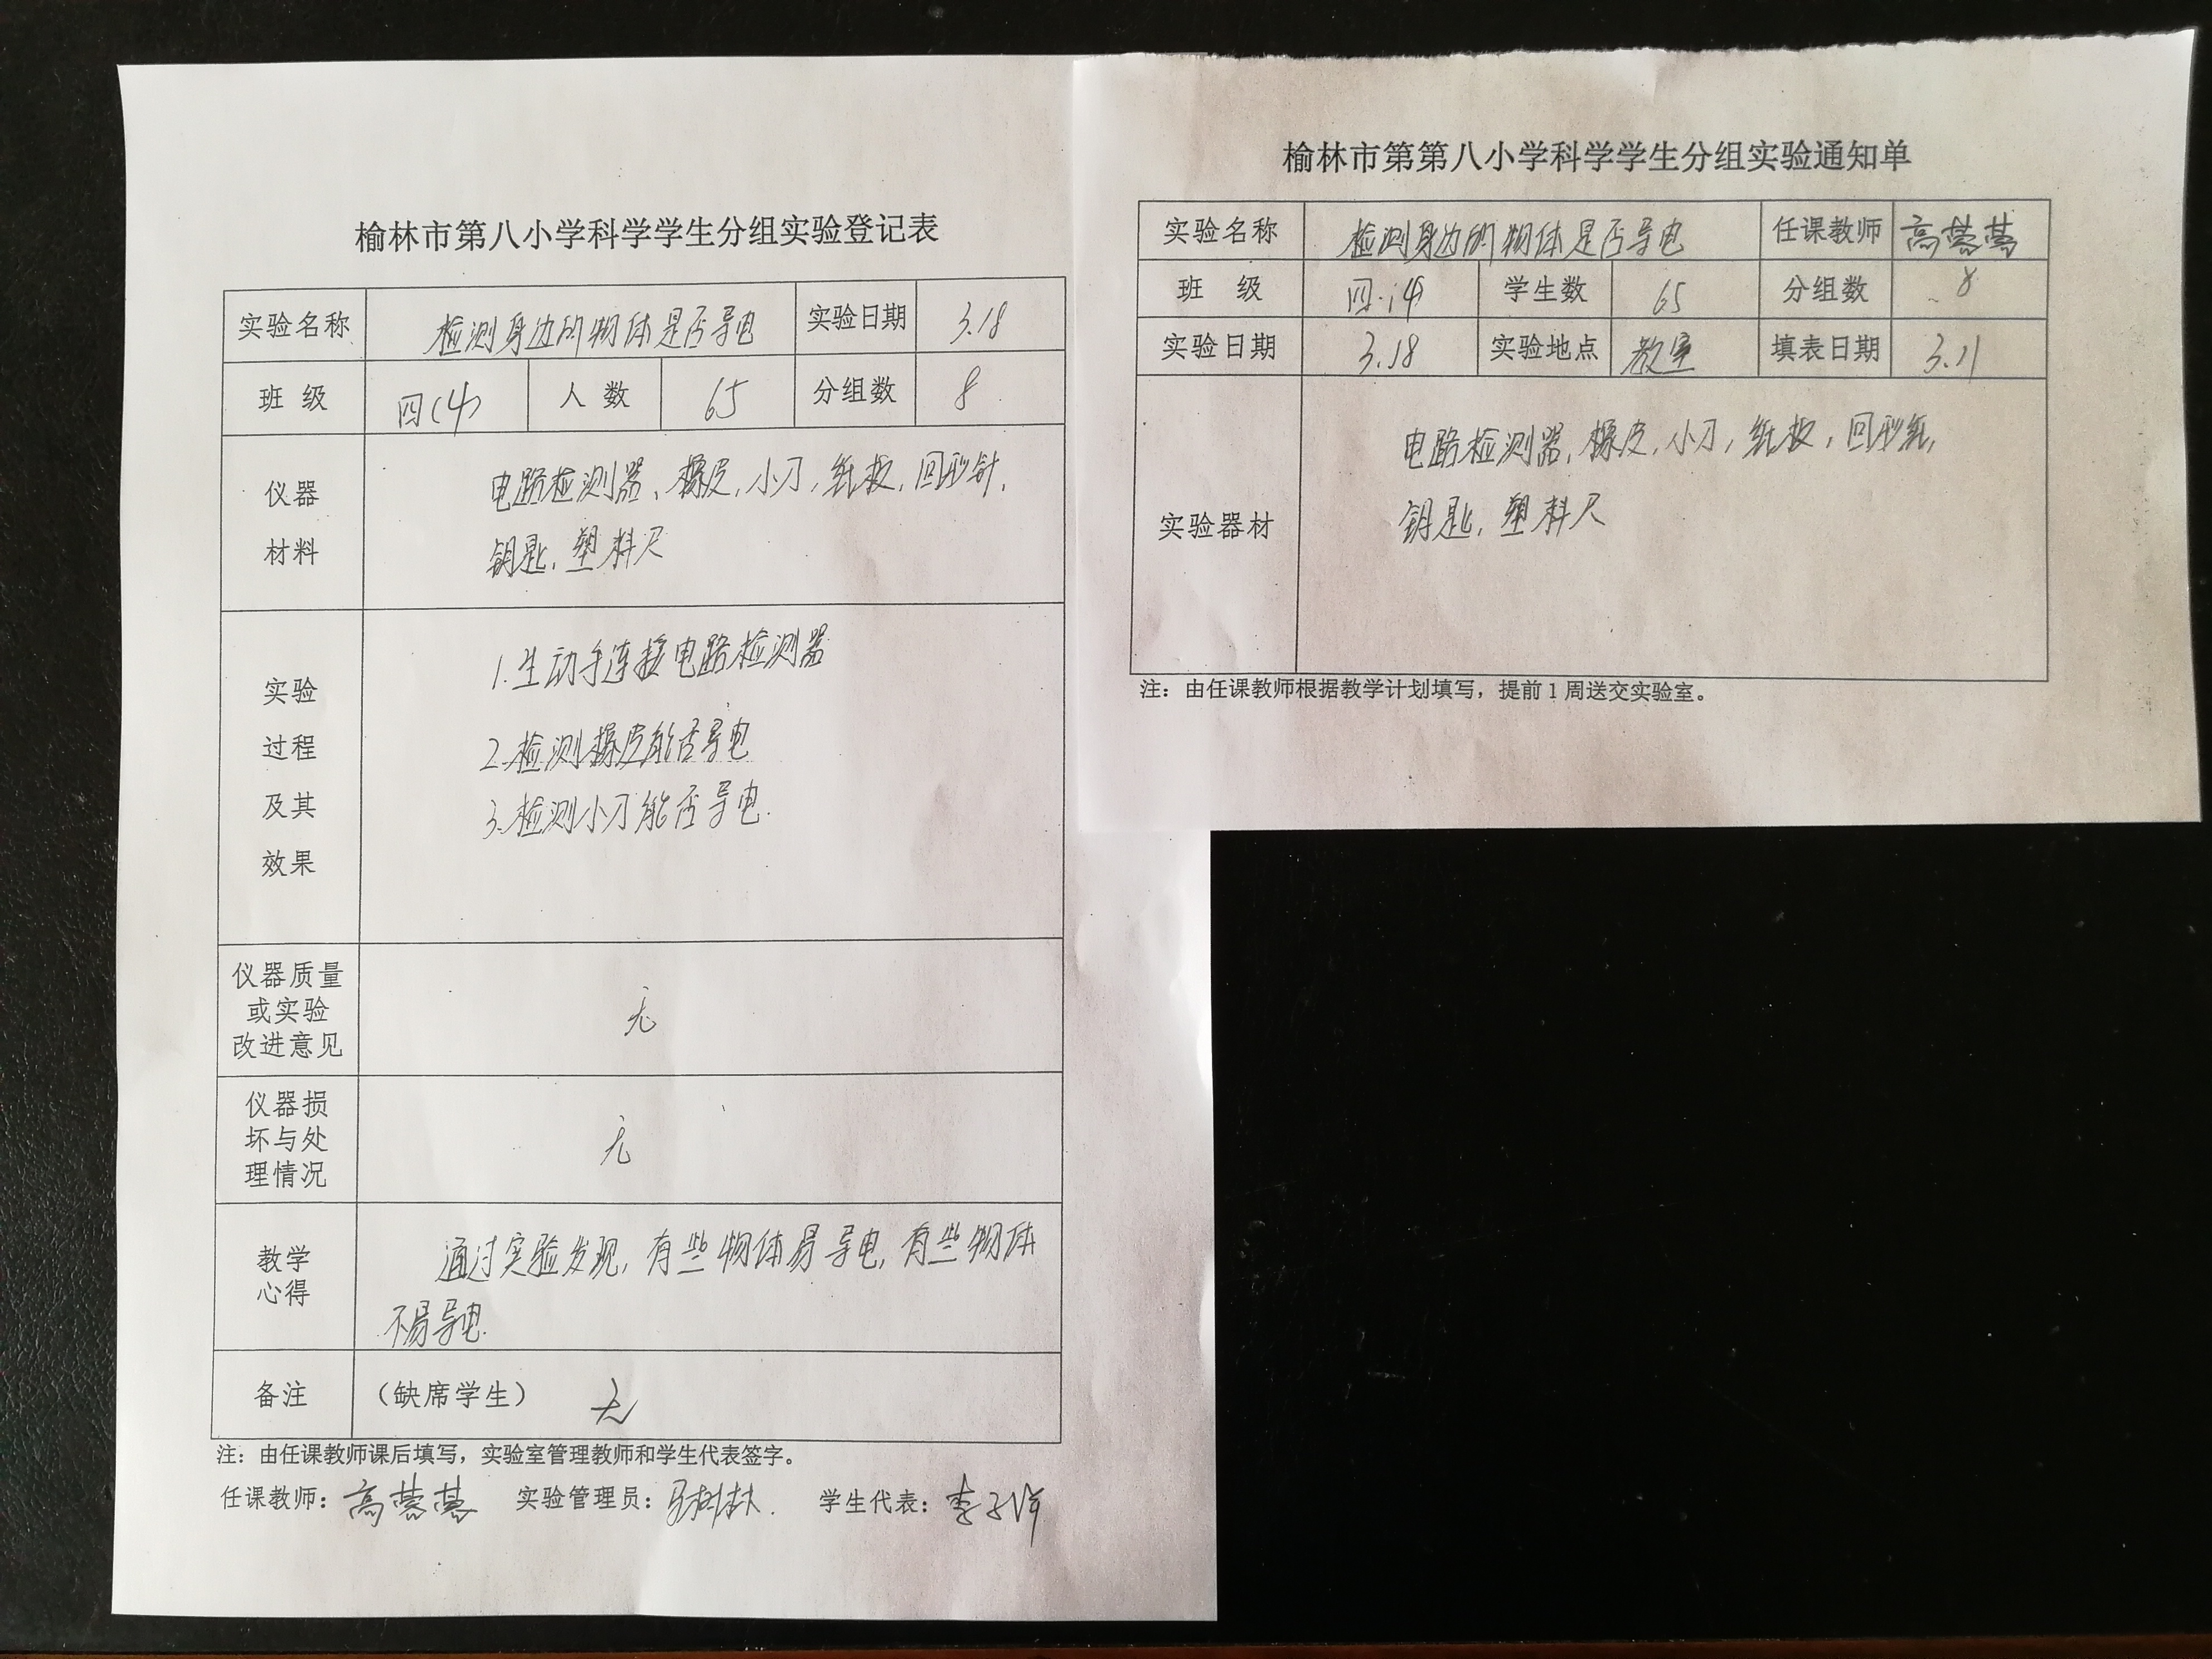 榆林市第八小学科学学生分组实验登记表
实验名称 检测身边的物体是否导电 实验日期 3.18
班 级 四(4) 人 数 65 分组数 8
仪器
材料
电路检测器、橡皮,小刀,纸板,回形针,
钥匙,塑料尺
实验
过程
及其
效果
1.生动手连接电路检测器
2.检测橡皮能否导电
3.检测小刀能否导电.
仪器质量
或实验
改进意见
无
仪器损
坏与处
理情况
无
教学
心得
通过实验发现,有些物体易导电,有些物体
不易导电.
备注 (缺席学生) 无
注:由任课教师课后填写,实验室管理教师和学生代表签字。
任课教师: 高 实验管理员: 学生代表: 李子
榆林市第第八小学科学学生分组实验通知单
实验名称 检测身边的物体是否导电 任课教师 高
班 级 四.(4) 学生数 65 分组数 8
实验日期 3.18 实验地点 教室 填表日期 3.11
实验器材
电路检测器,橡皮,小刀,纸板,回形
钥匙,塑料尺
注:由任课教师根据教学计划填写,提前1周送交实验室。